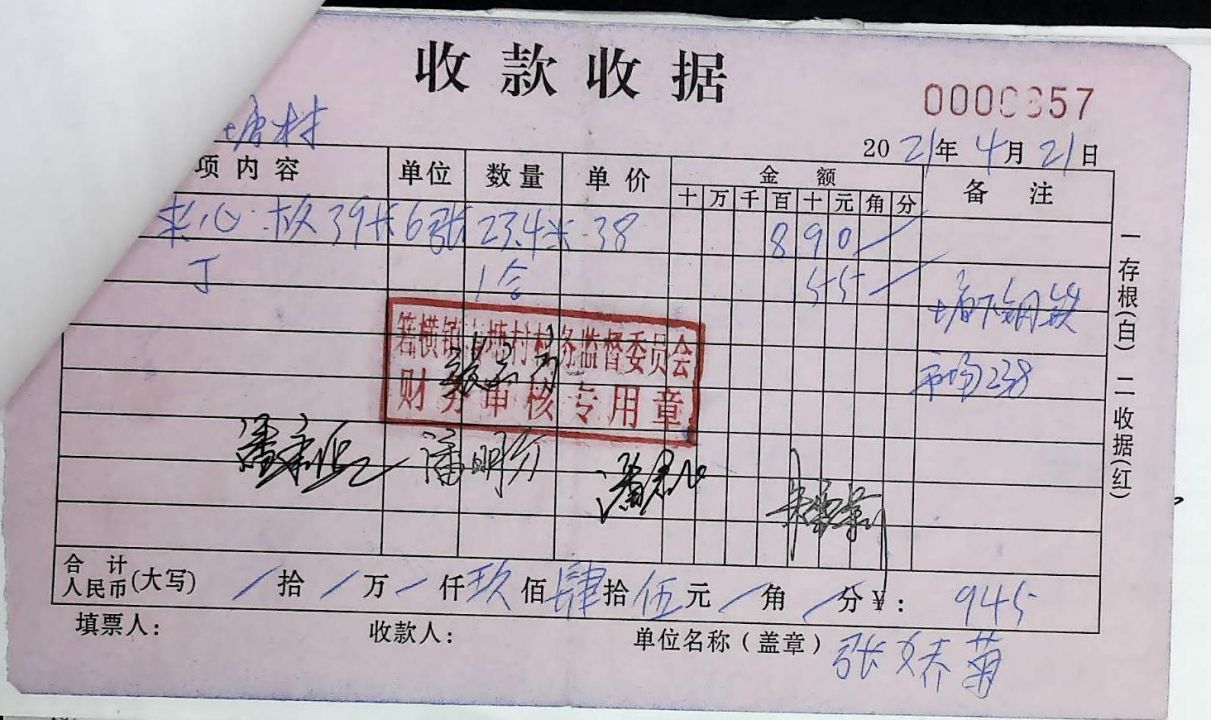 收款收据
0000657
塘村
2021年4月21日
项内容 单位 数量 单价 金额 备注
十 万 千 百 十 元 角 分
夹心板 39长 6张 23.4米 38 890
丁 1合 55
塘下钢铁
市场238
箬横镇 塘村村务监督委员会
财务审核专用章
潘明
合计
人民币(大写) 拾 万 仟 玖佰肆拾伍元 角 分¥: 945
填票人: 收款人: 单位名称(盖章) 张娇菊
一存根(白) 二收据(红)